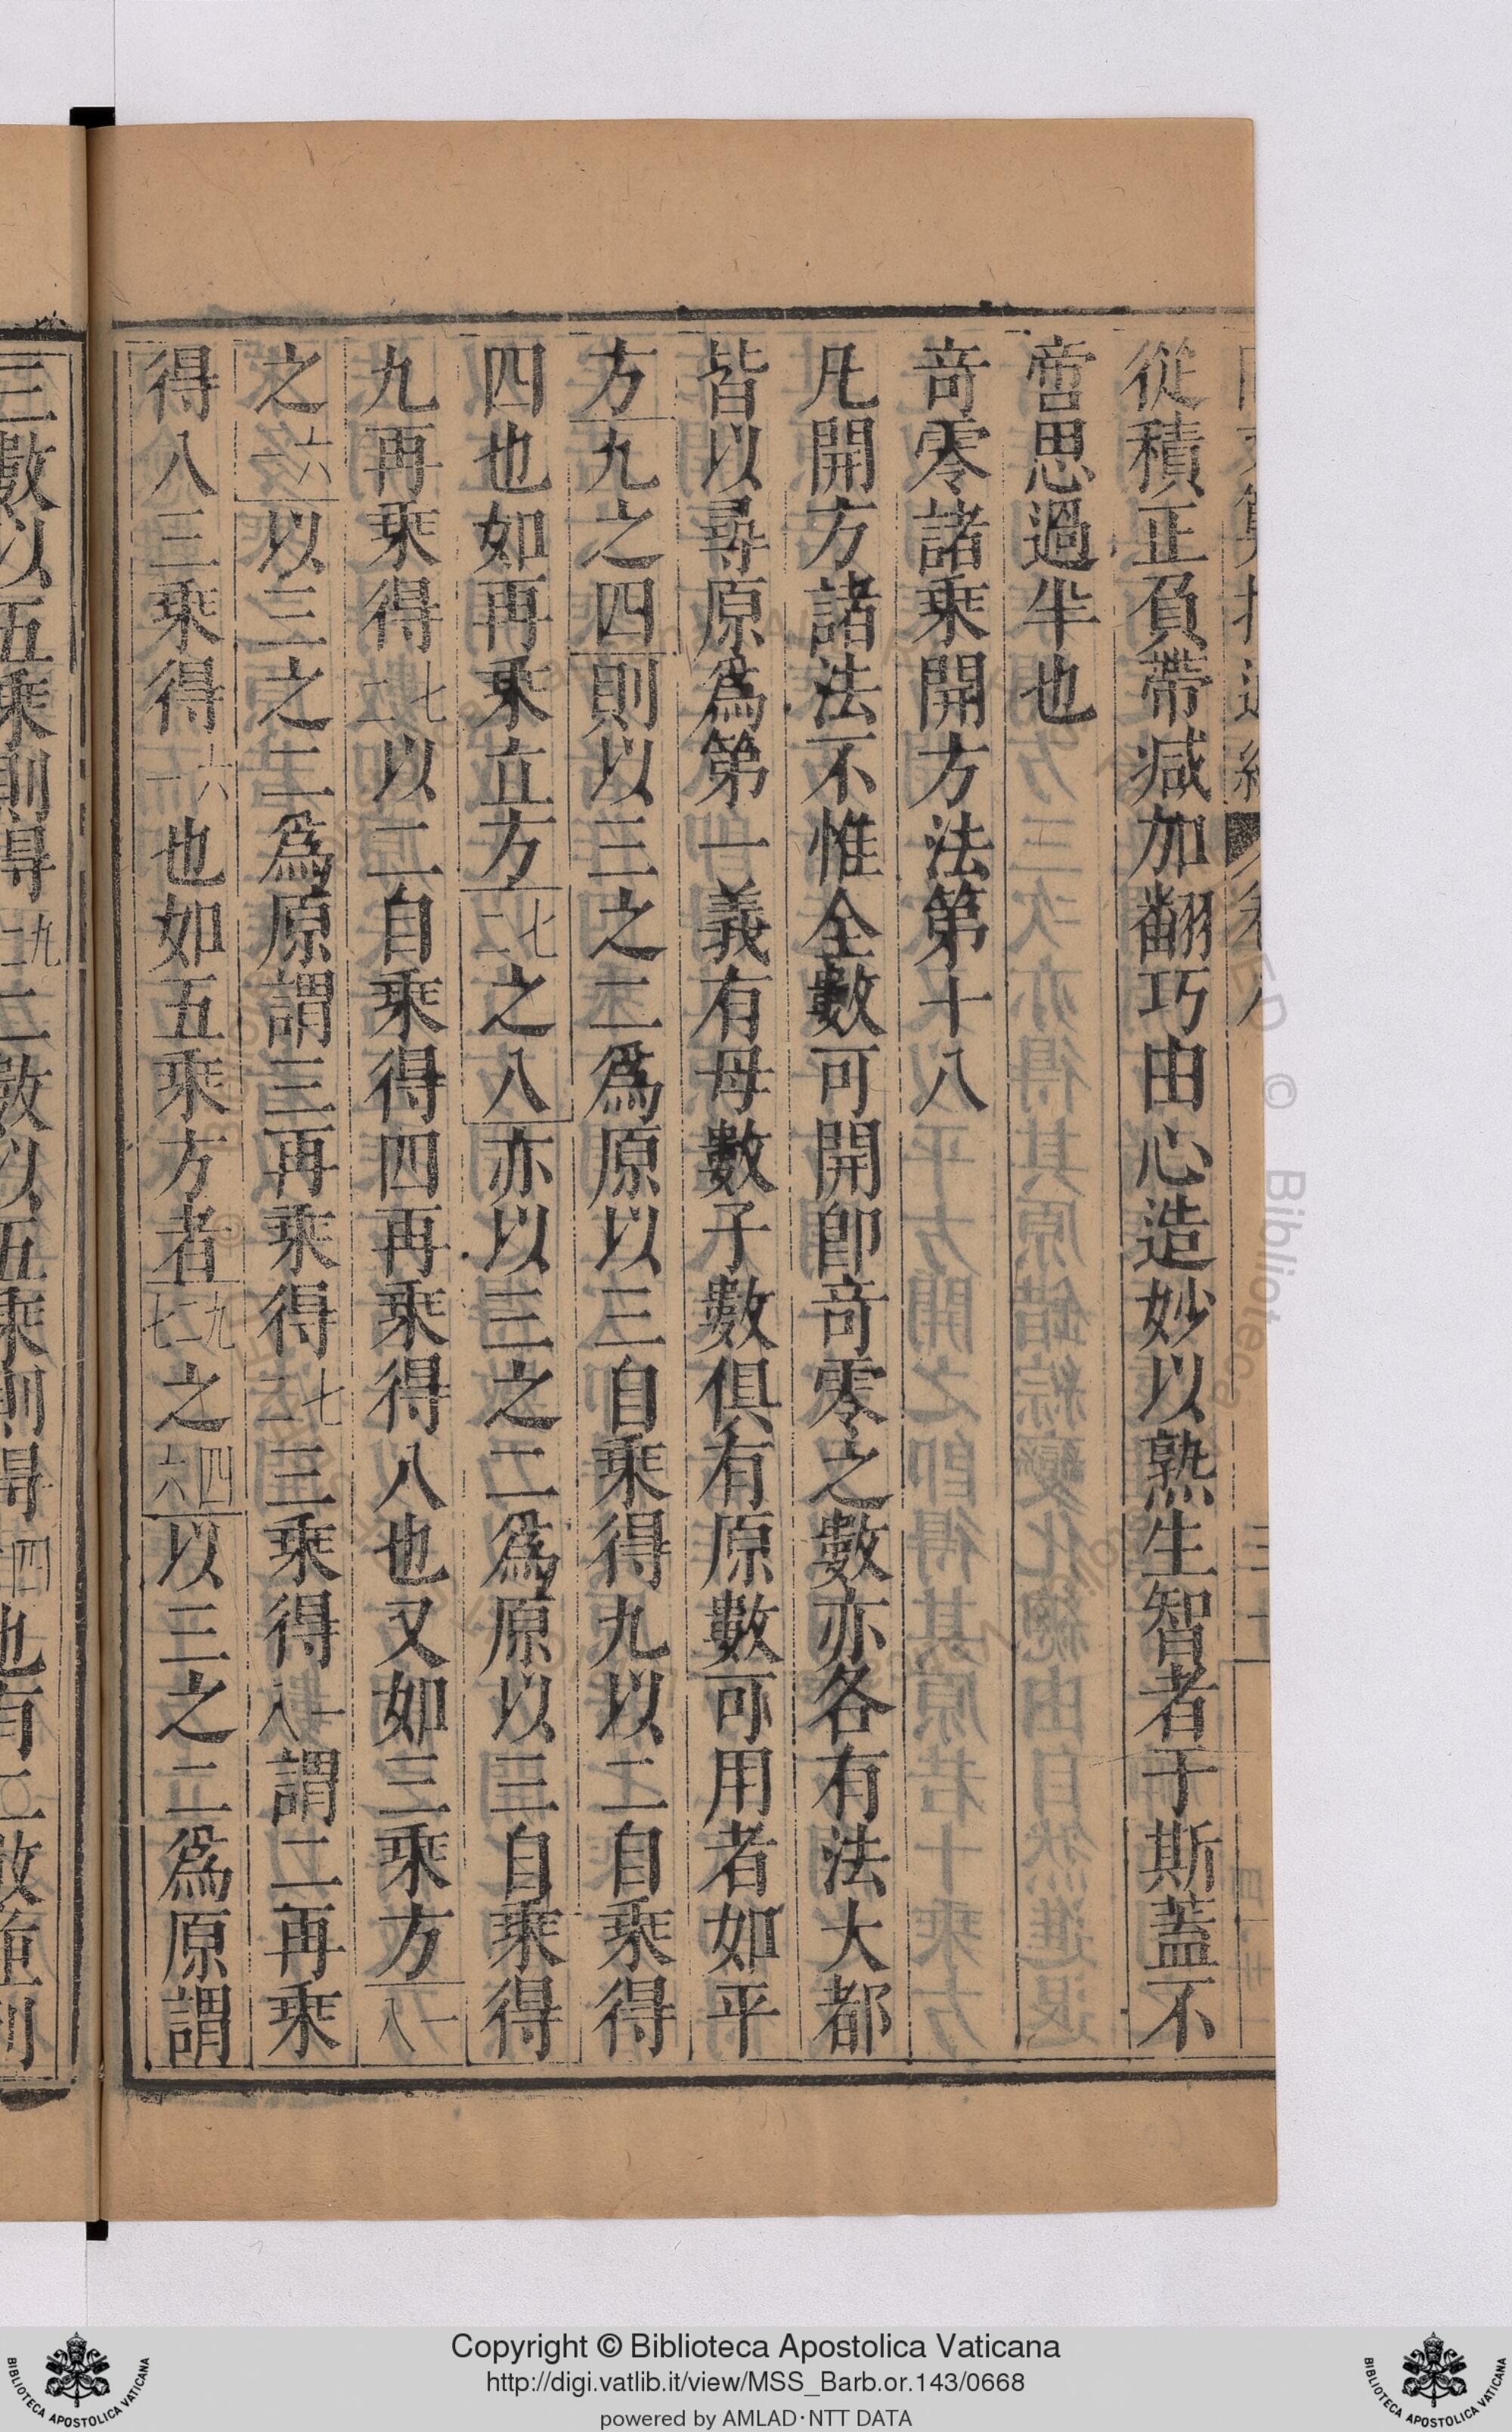 從積正負帶減加翻巧由心造妙以熟生智者于斯蓋不
啻思過半也
竒零諸乘開方法第十八
凡開方諸法不惟全數可開卽竒零之數亦各有法大都
皆以尋原爲第一義有母數子數俱有原數可用者如平
方九之四則以三之二爲原以三自乘得九以二自乘得
四也如再乘立方二七之八亦以三之二爲原以三自乘得
九再乘得二七以二自乘得四再乘得八也又如三乘方八一
之一六以三之二爲原謂三再乘得二七三乘得八一謂二再乘
得八三乘得一六也如五乘方者七二九之六四以三之二爲原謂
Copyright © Biblioteca Apostolica Vaticana
http://digi.vatlib.it/view/MSS_Barb.or.143/0668
powered by AMLAD·NTT DATA
BIBLIOTECA APOSTOLICA VATICANA
BIBLIOTECA APOSTOLICA VATICANA